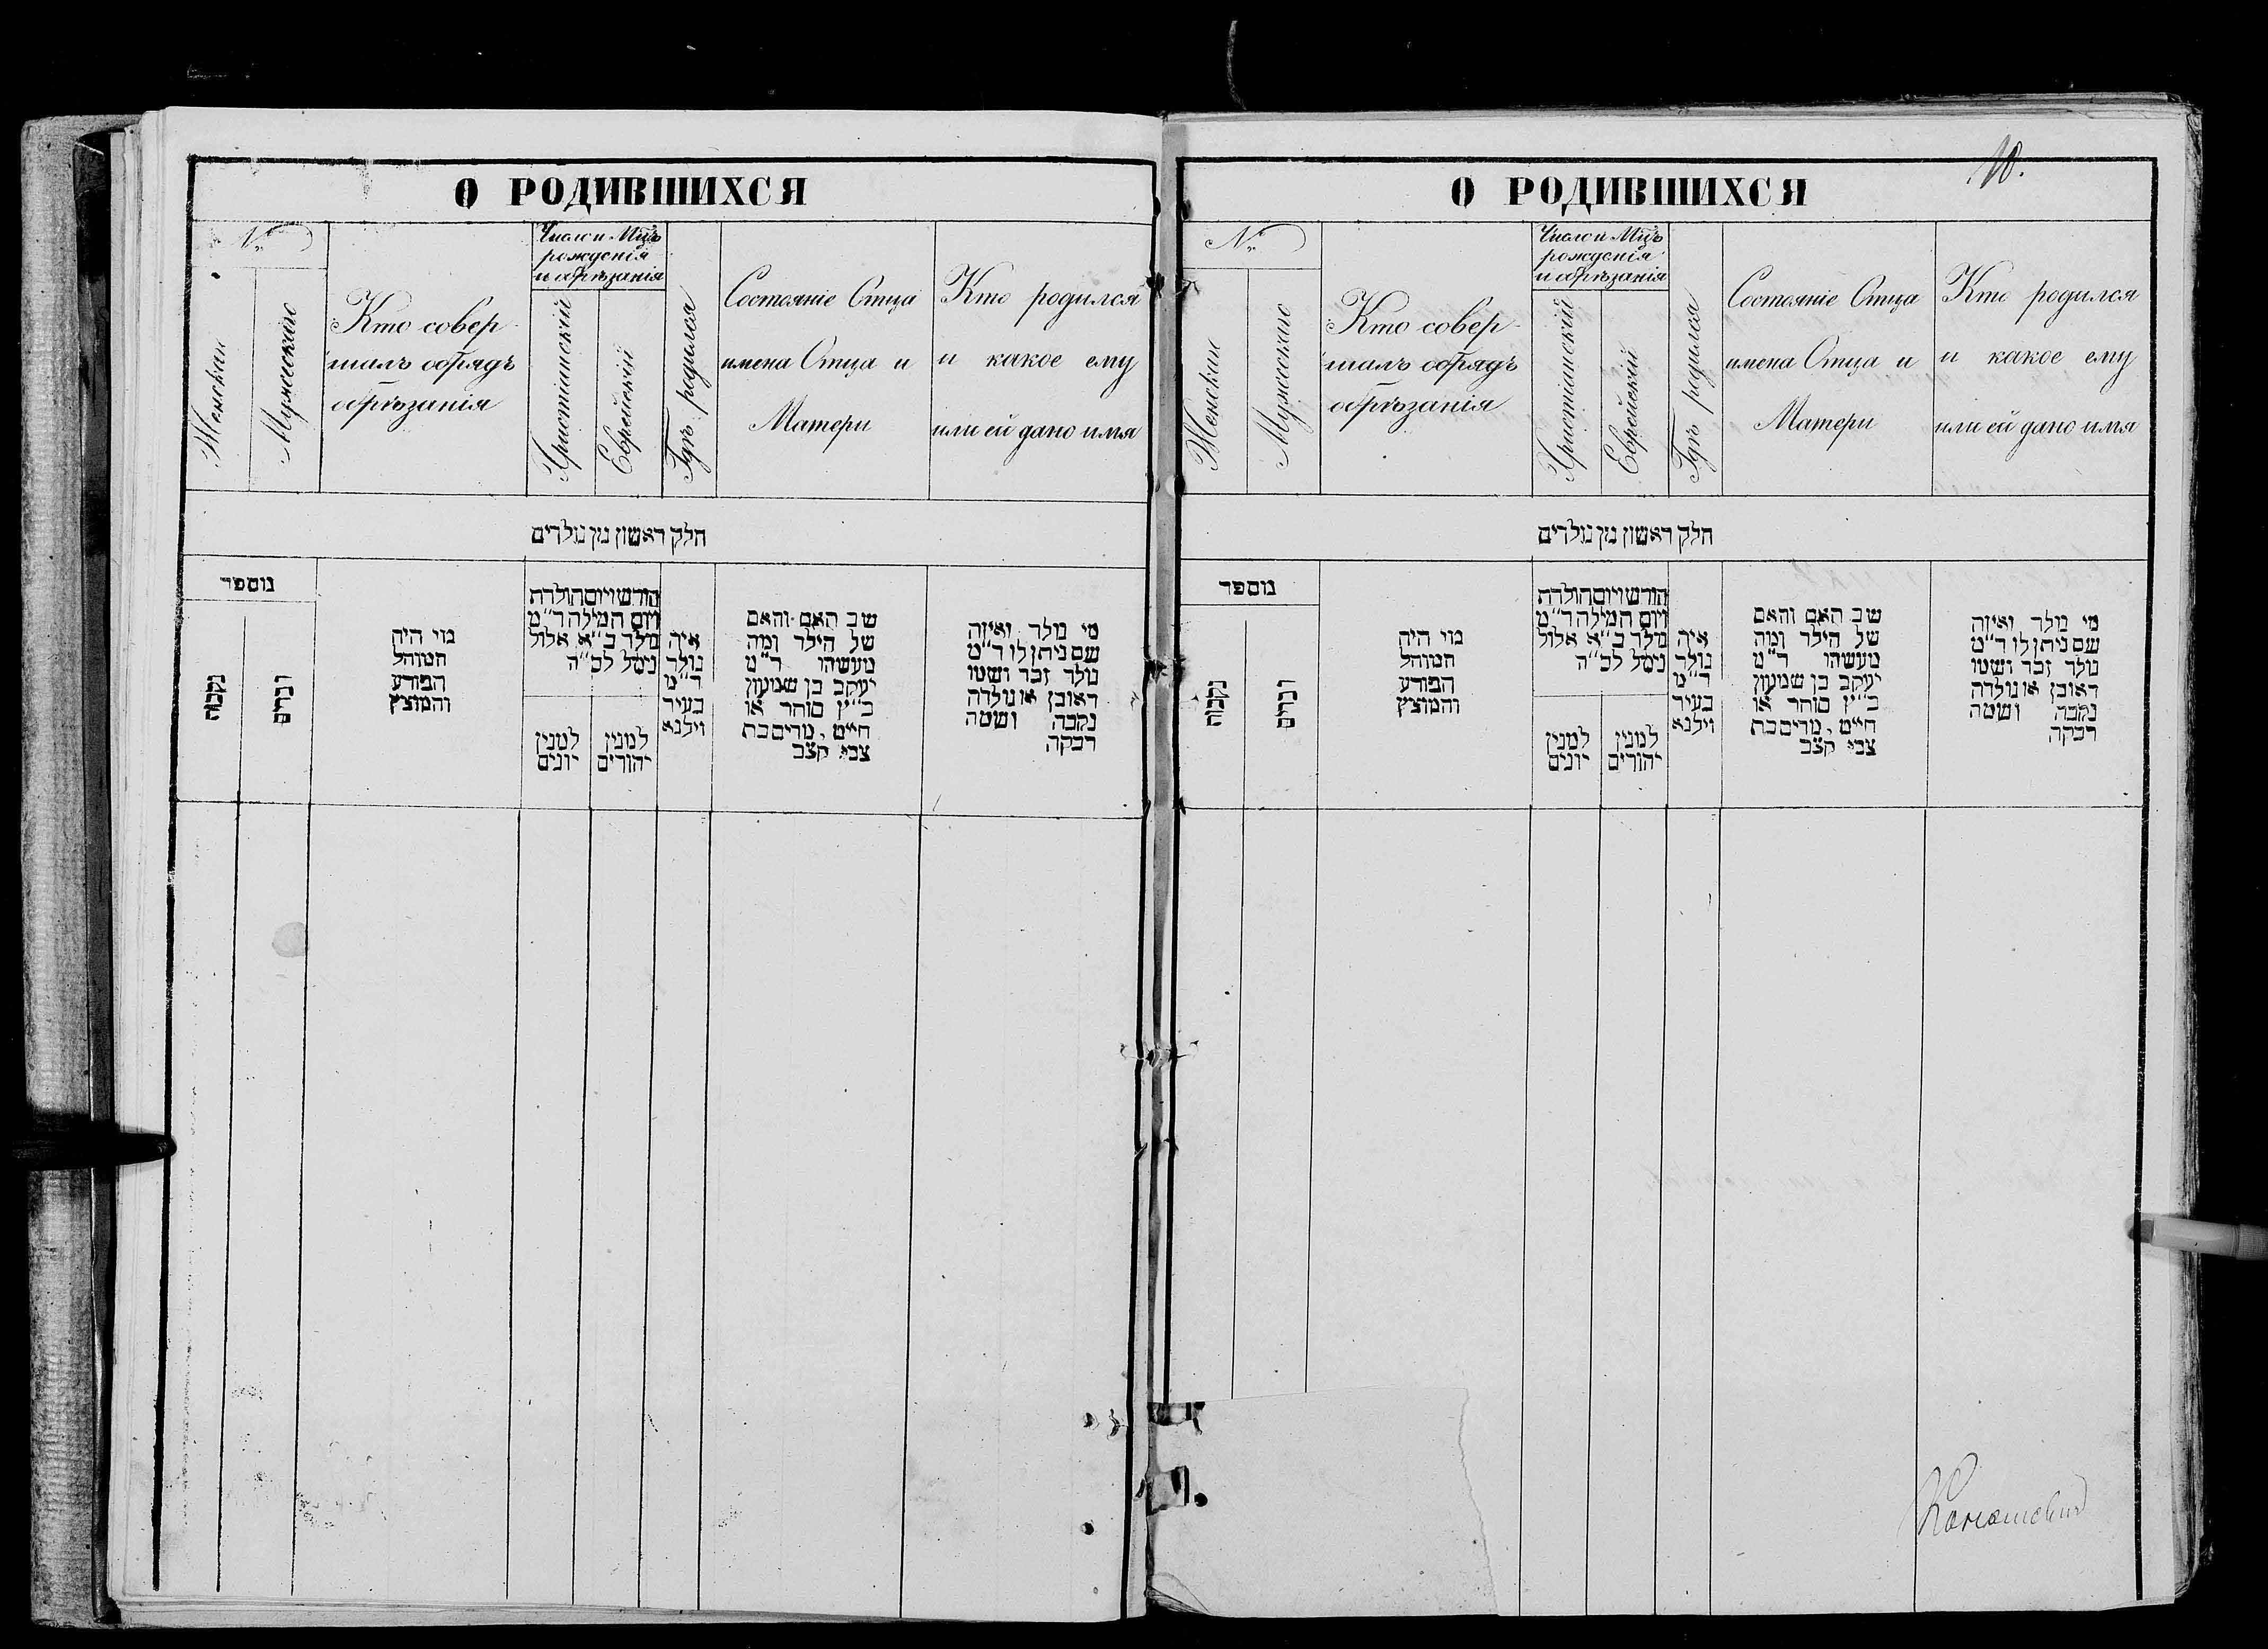 О РОДИВШИХСЯ
№
Женскаго
Мужескаго
Кто совер-
шалъ обрядъ
обрѣзанія
Число и Мцъ
рожденія
и обрѣзанія
Христіанскій
Еврейскій
Гдѣ родился
Состояніе Отца
имена Отца и
Матери
Кто родился
и какое ему
или ей дано имя
חלק ראשון מן נולדים
מספר
נקבות
זכרים
מי היה
המוהל
הפורע
והמוצץ
חודש ויום הולדת
ויום המילה ד״מ
נולד כ״א אלול
נימל לכ״ה
למנין
יונים
למנין
יהודים
איה
נולד
ד״מ
בעיר
וילנא
שם האב והאם
של הילד ומה
מעשהו ד״מ
יעקב בן שמעון
כ״ץ סוחר או
חייט, מרים בת
צבי קצב
מי נולד ואיזה
שם ניתן לו ד״מ
נולד זכר ושמו
ראובן או נולדה
נקבה ושמה
רבקה
10.
О РОДИВШИХСЯ
№
Женскаго
Мужескаго
Кто совер-
шалъ обрядъ
обрѣзанія
Число и Мцъ
рожденія
и обрѣзанія
Христіанскій
Еврейскій
Гдѣ родился
Состояніе Отца
имена Отца и
Матери
Кто родился
и какое ему
или ей дано имя
חלק ראשון מן נולדים
מספר
נקבות
זכרים
מי היה
המוהל
הפורע
והמוצץ
חודש ויום הולדת
ויום המילה ד״מ
נולד כ״א אלול
נימל לכ״ה
למנין
יונים
למנין
יהודים
איה
נולד
ד״מ
בעיר
וילנא
שם האב והאם
של הילד ומה
מעשהו ד״מ
יעקב בן שמעון
כ״ץ סוחר או
חייט, מרים בת
צבי קצב
מי נולד ואיזה
שם ניתן לו ד״מ
נולד זכר ושמו
ראובן או נולדה
נקבה ושמה
רבקה